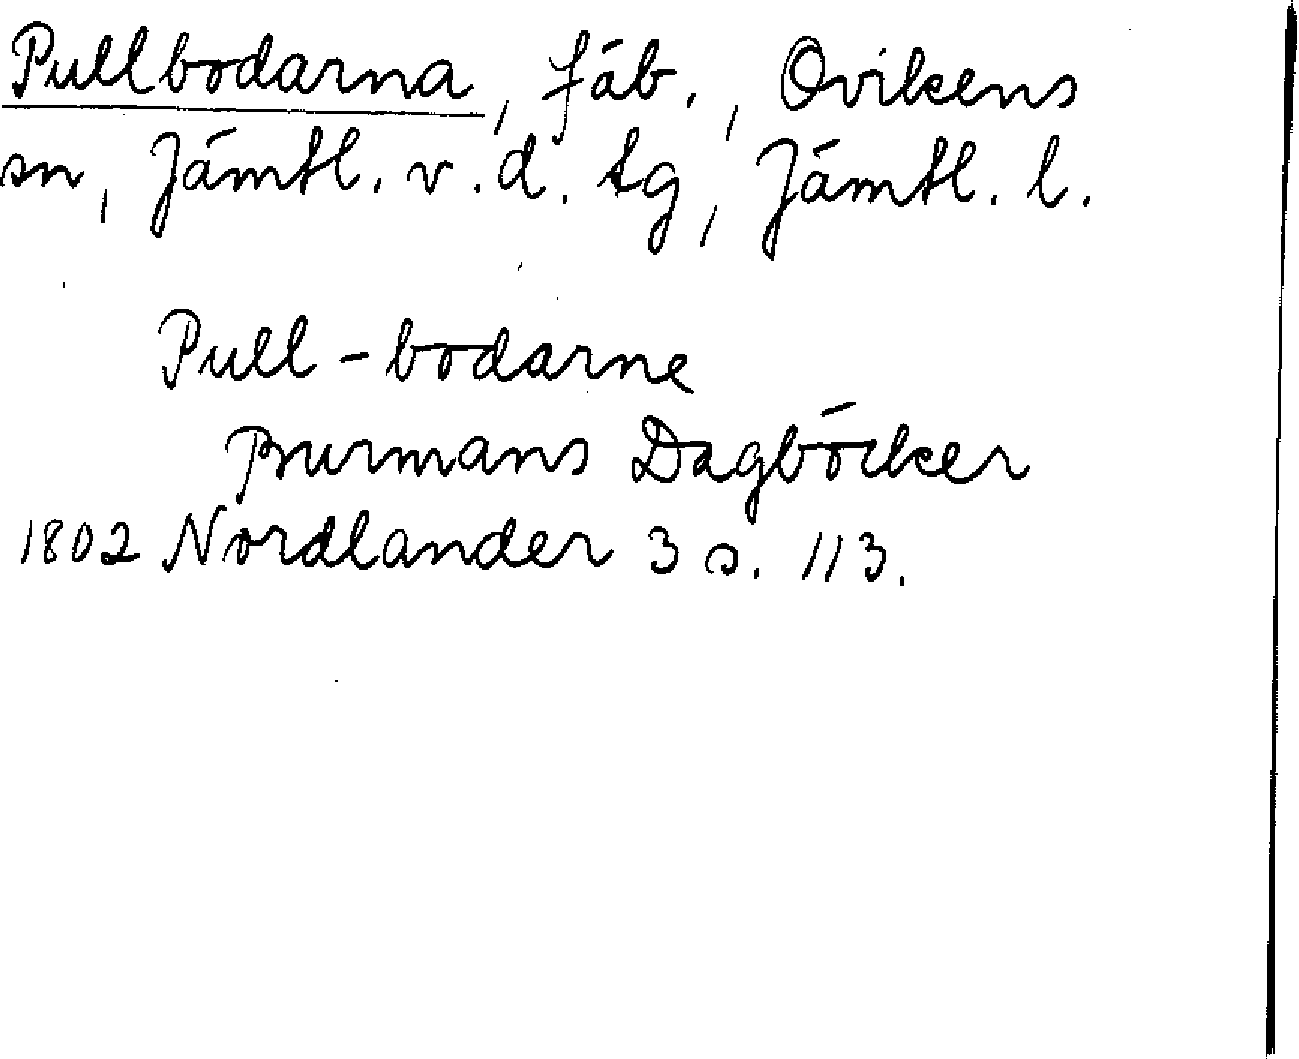 Pullbodarna, fäb., Ovikens
sn, Jämtl. v. d. tg, Jämtl. l.
Pull-bodarne
Burmans Dagböcker
1802 Nordlander 3 s. 113.